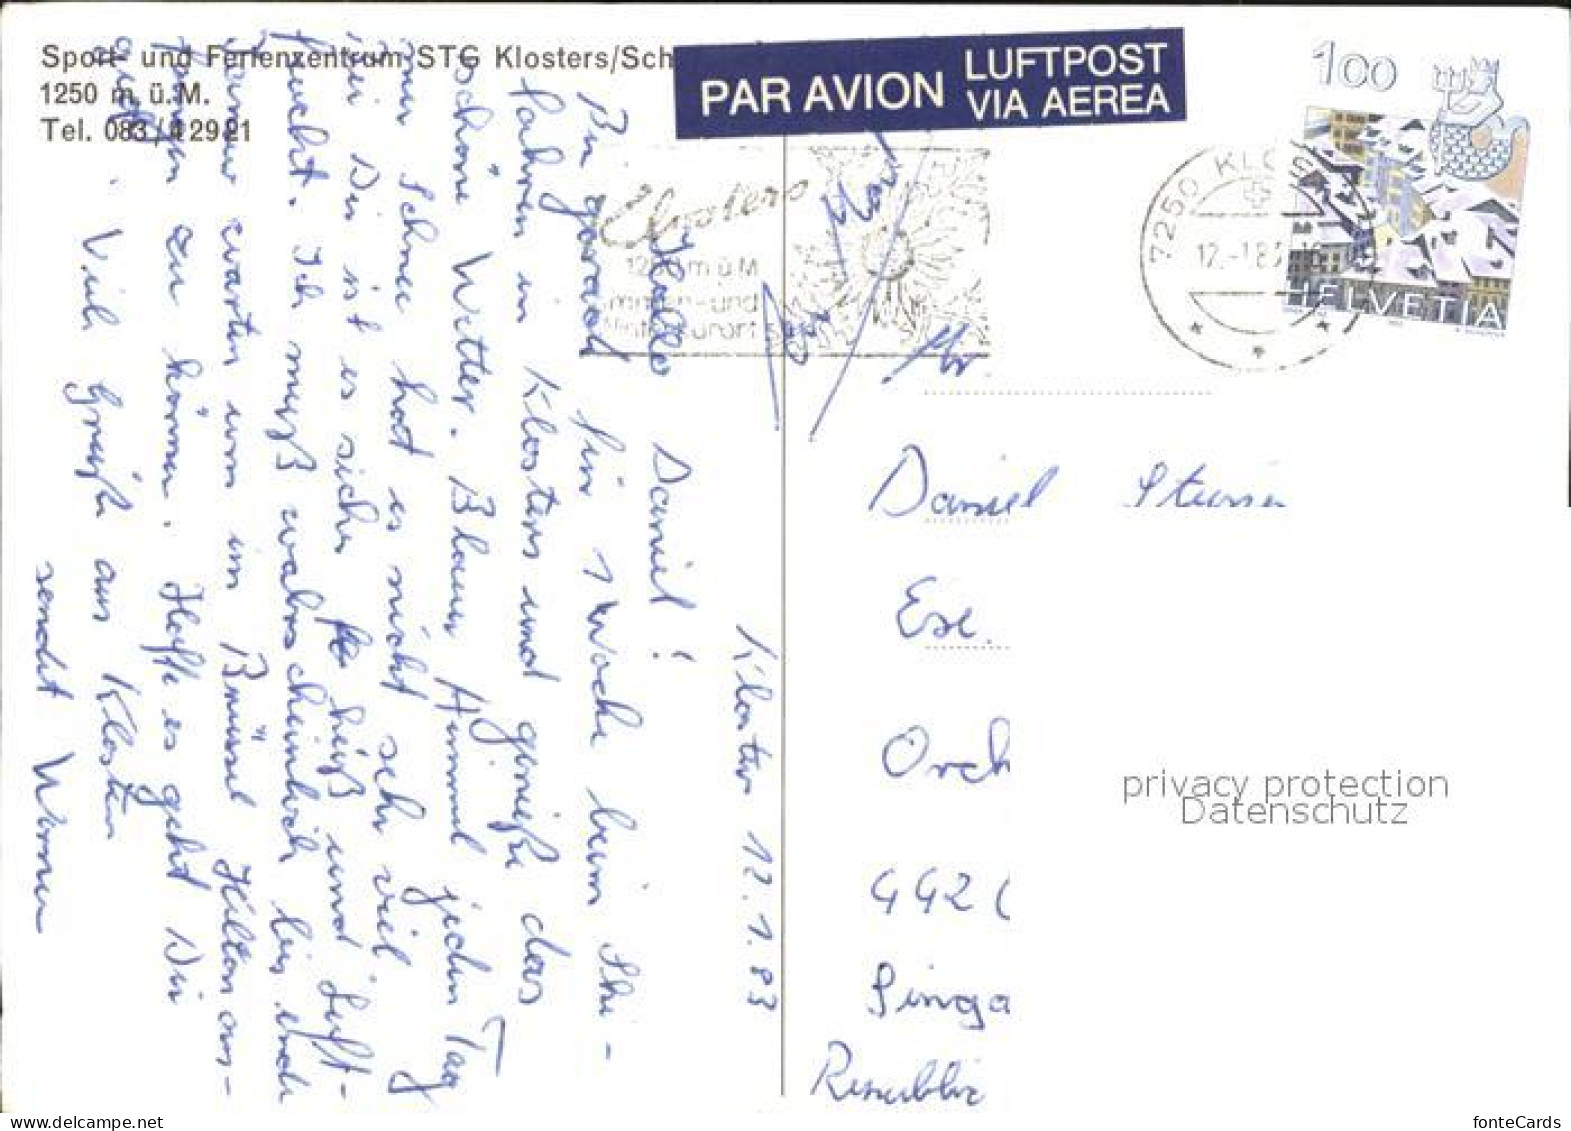 Sport- und Ferienzentrum STG Klosters/Sch
1250 m. ü.M.
Tel. 083/4 29 21
PAR AVION
LUFTPOST
VIA AEREA
100
HELVETIA
7250 KLOS
12.-1.83
Klosters
1250 m ü M
Sommer- und
Winterkurort
Klosters 12.1.83
Hallo Daniel!
Bin gerade für 1 Woche beim Ski-
fahren in Klosters und genieße das
schöne Wetter. Blauer Himmel jeden Tag
nur Schnee hat es nicht sehr viel.
Bei Dir ist es sicher heiß und Luft-
feucht. Ich muß wahrscheinlich bis Ende
Januar warten um im Brüssel Hilton an-
fangen zu können. Hoffe es geht Dir
gut. Viele Grüße aus Klosters
sendet Werner
Daniel
Ese.
Orch
442
Singa
Republic
privacy protection
Datenschutz
fonteCards